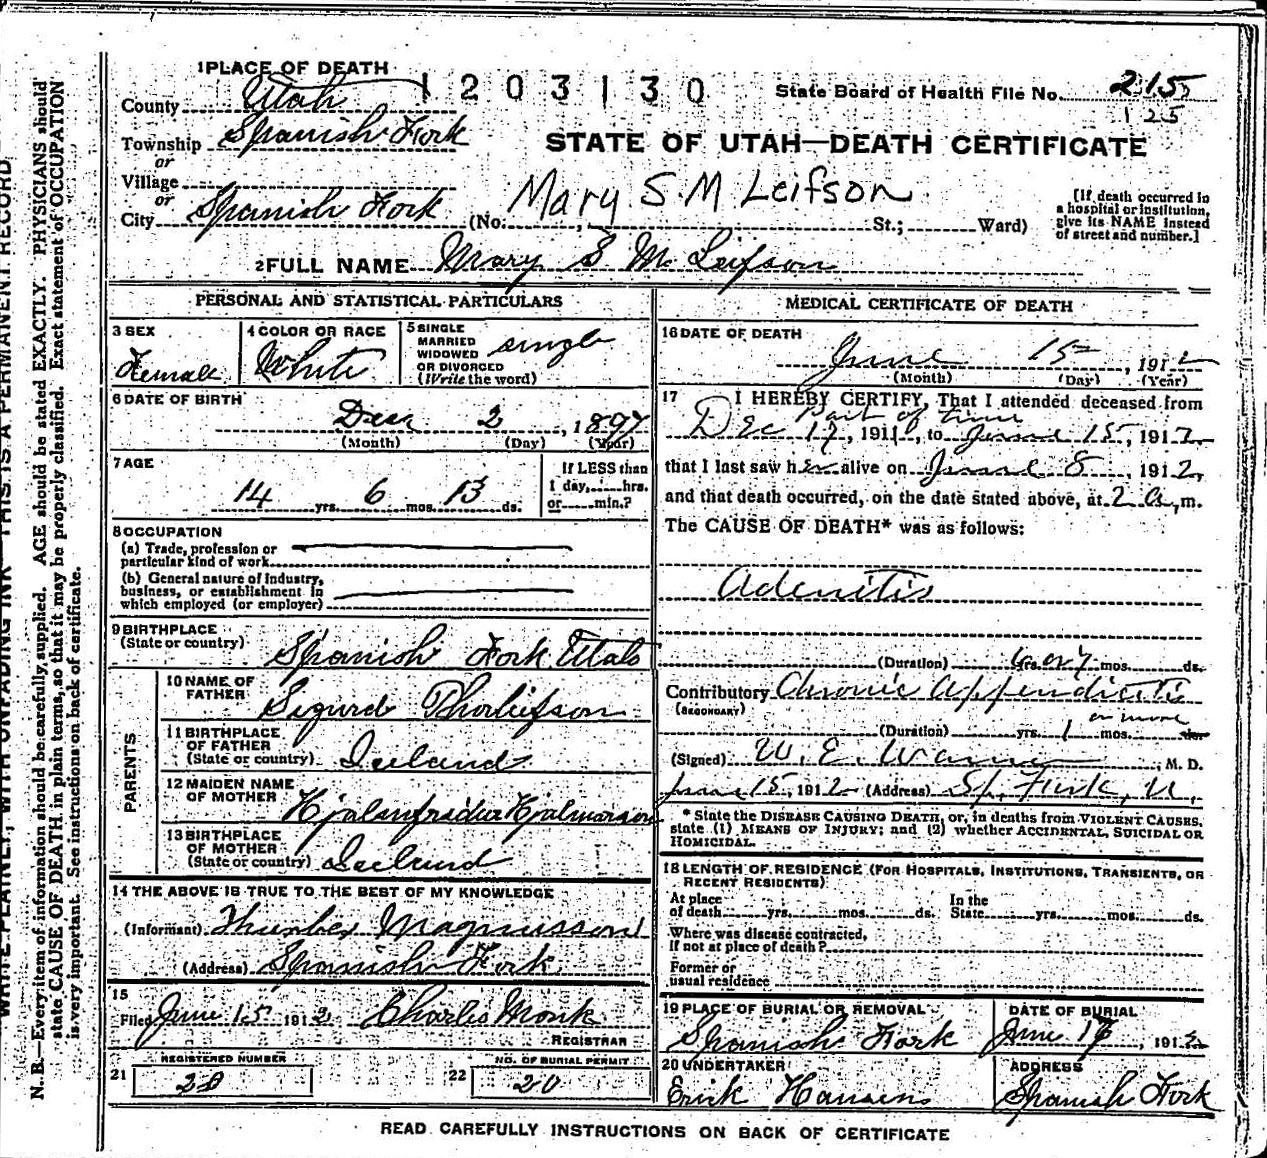 1 PLACE OF DEATH
1203130
State Board of Health File No. 215
125
County Utah
Township Spanish Fork
or
Village
or
City Spanish Fork (No. , St.; Ward)
STATE OF UTAH—DEATH CERTIFICATE
Mary S.M Leifson
[If death occurred in a hospital or institution, give its NAME instead of street and number.]
2 FULL NAME Mary S M. Leifson
PERSONAL AND STATISTICAL PARTICULARS
3 SEX Female
4 COLOR OR RACE White
5 SINGLE MARRIED WIDOWED OR DIVORCED (Write the word) single
6 DATE OF BIRTH
Dec 2, 1897
(Month) (Day) (Year)
7 AGE
14 yrs. 6 mos. 13 ds.
If LESS than 1 day, hrs. or min.?
8 OCCUPATION
(a) Trade, profession or particular kind of work
(b) General nature of Industry, business, or establishment in which employed (or employer)
9 BIRTHPLACE
(State or country) Spanish Fork Utah
PARENTS
10 NAME OF FATHER Sigurd Thorleifson
11 BIRTHPLACE OF FATHER (State or country) Iceland
12 MAIDEN NAME OF MOTHER Hjalmarson
13 BIRTHPLACE OF MOTHER (State or country) Iceland
14 THE ABOVE IS TRUE TO THE BEST OF MY KNOWLEDGE
(Informant) Magnusson
(Address) Spanish Fork
15
Filed June 15 1912 Charles Monk
REGISTRAR
REGISTERED NUMBER
21 20
NO. OF BURIAL PERMIT
22 20
MEDICAL CERTIFICATE OF DEATH
16 DATE OF DEATH
June 15, 1912
(Month) (Day) (Year)
17 I HEREBY CERTIFY, That I attended deceased from
Part of time
Dec 17, 1911, to June 15, 1912
that I last saw her alive on June 8, 1912,
and that death occurred, on the date stated above, at 2 a.m.
The CAUSE OF DEATH* was as follows:
Adenitis
(Duration) yrs. 6 or 7 mos. ds.
Contributory Chronic Appendicitis
(SECONDARY)
or more
(Duration) yrs. 1 mos. ds.
(Signed) W. E. , M. D.
June 15, 1912 (Address) Sp. Fork, U.
* State the DISEASE CAUSING DEATH, or, in deaths from VIOLENT CAUSES, state (1) MEANS OF INJURY; and (2) whether ACCIDENTAL, SUICIDAL OR HOMICIDAL.
18 LENGTH OF RESIDENCE (FOR HOSPITALS, INSTITUTIONS, TRANSIENTS, OR RECENT RESIDENTS)
At place of death yrs. mos. ds.
In the State yrs. mos. ds.
Where was disease contracted, If not at place of death?
Former or usual residence
19 PLACE OF BURIAL OR REMOVAL Spanish Fork
DATE OF BURIAL June 17, 1912
20 UNDERTAKER Erick Hansens
ADDRESS Spanish Fork
READ CAREFULLY INSTRUCTIONS ON BACK OF CERTIFICATE
WRITE PLAINLY, WITH UNFADING INK—THIS IS A PERMANENT RECORD
N. B.—Every item of information should be carefully supplied. AGE should be stated EXACTLY. PHYSICIANS should
state CAUSE OF DEATH in plain terms, so that it may be properly classified. Exact statement of OCCUPATION
is very important. See instructions on back of certificate.